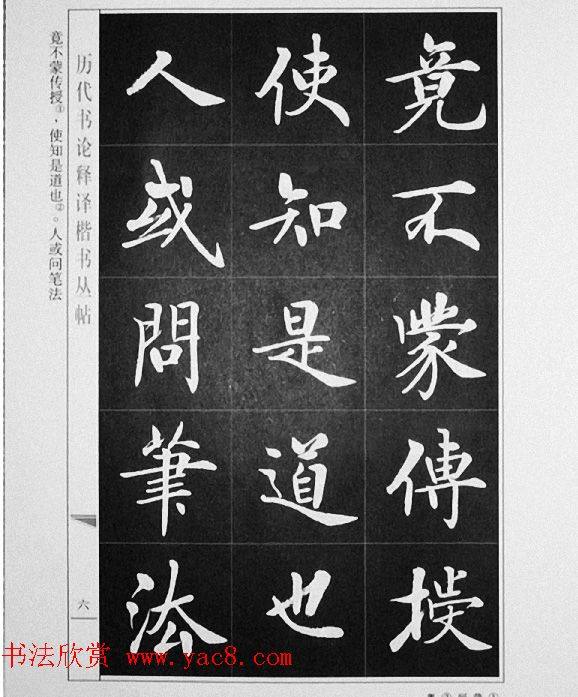 竟不蒙傳授
使知是道也
人或問筆法
历代书论释译楷书丛帖
六
竟不蒙传授①，使知是道也②。人或问笔法
书法欣赏 www.yac8.com